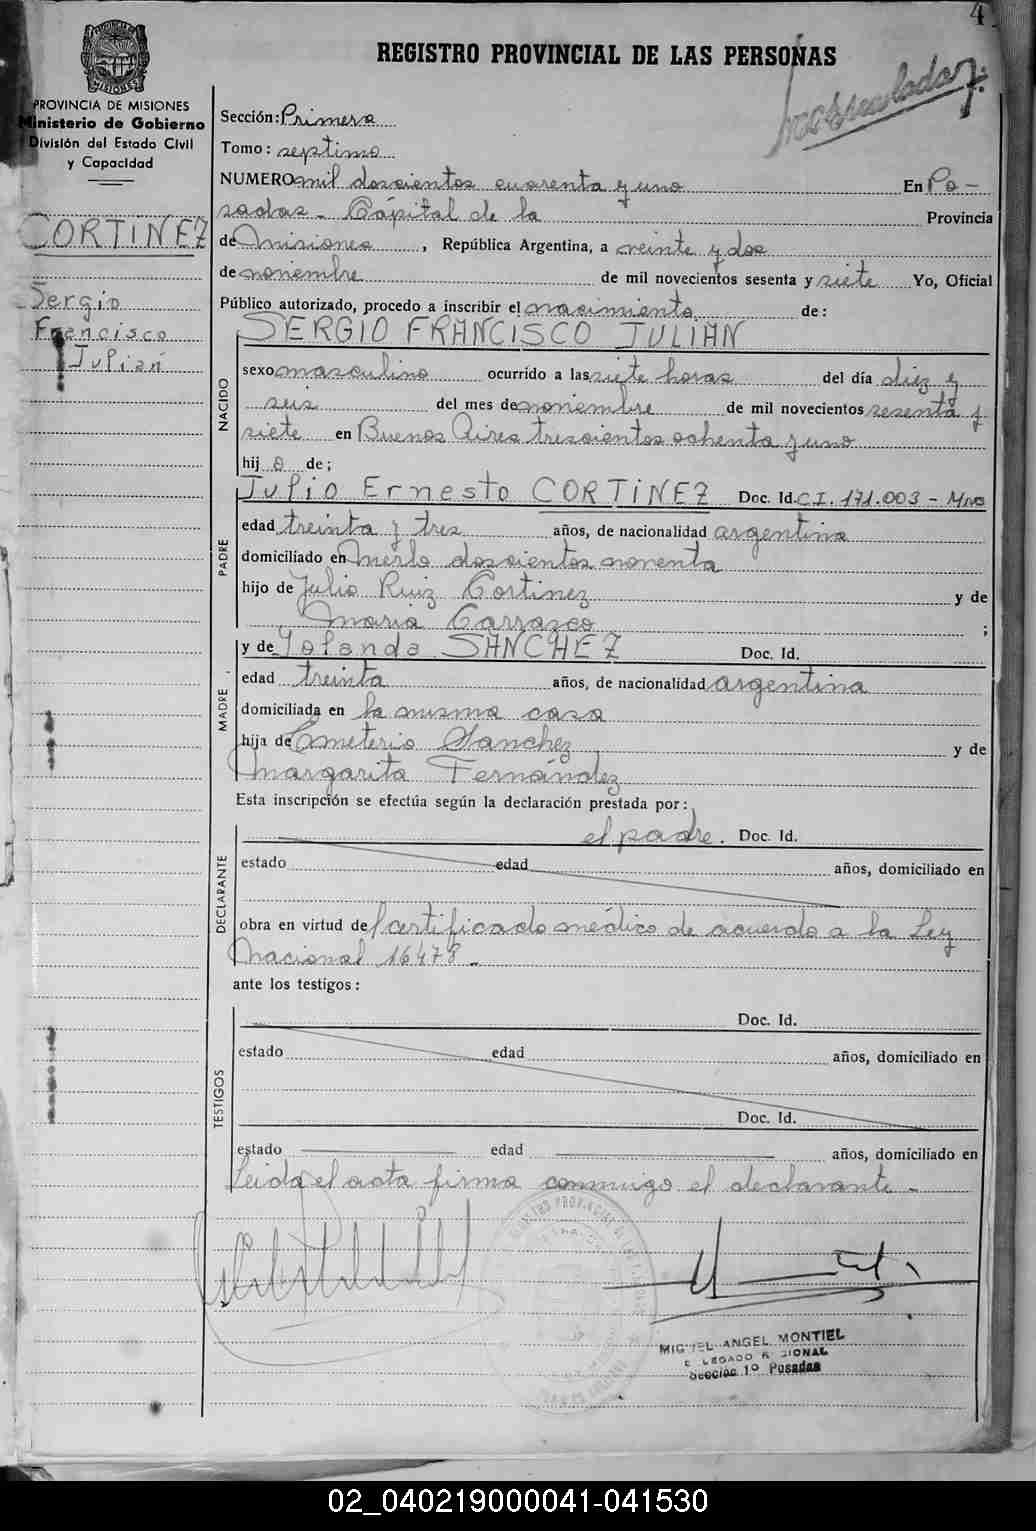 4
REGISTRO PROVINCIAL DE LAS PERSONAS
PROVINCIA DE MISIONES
Ministerio de Gobierno
División del Estado Civil
y Capacidad
CORTINEZ
Sergio
Francisco
Julián
Sección: Primera
Tomo: septimo
NUMERO mil doscientos cuarenta y uno En Po-
sadas - Cápital de la Provincia
de Misiones, República Argentina, a veinte y dos
de noviembre de mil novecientos sesenta y siete Yo, Oficial
Público autorizado, procedo a inscribir el nacimiento de:
SERGIO FRANCISCO JULIAN
NACIDO
sexo masculino ocurrido a las siete horas del día diez y
seis del mes de noviembre de mil novecientos sesenta y
siete en Buenos Aires trescientos ochenta y uno
hijo de;
PADRE
Julio Ernesto CORTINEZ Doc. Id. C.I. 171.003 - Mnes
edad treinta y tres años, de nacionalidad argentina
domiciliado en Merlo doscientos noventa
hijo de Julio Ruiz Cortinez y de
Maria Carrasco ;
MADRE
y de Yolanda SANCHEZ Doc. Id.
edad treinta años, de nacionalidad argentina
domiciliada en la misma casa
hija de Emeterio Sanchez y de
Margarita Fernández
Esta inscripción se efectúa según la declaración prestada por:
DECLARANTE
el padre. Doc. Id.
estado edad años, domiciliado en
obra en virtud de certificado médico de acuerdo a la Ley
Nacional 16478 -
ante los testigos:
TESTIGOS
Doc. Id.
estado edad años, domiciliado en
Doc. Id.
estado edad años, domiciliado en
Leida el acta firma conmigo el declarante -
MIGUEL ANGEL MONTIEL
DELEGADO REGIONAL
Sección 1º Posadas
02_040219000041-041530